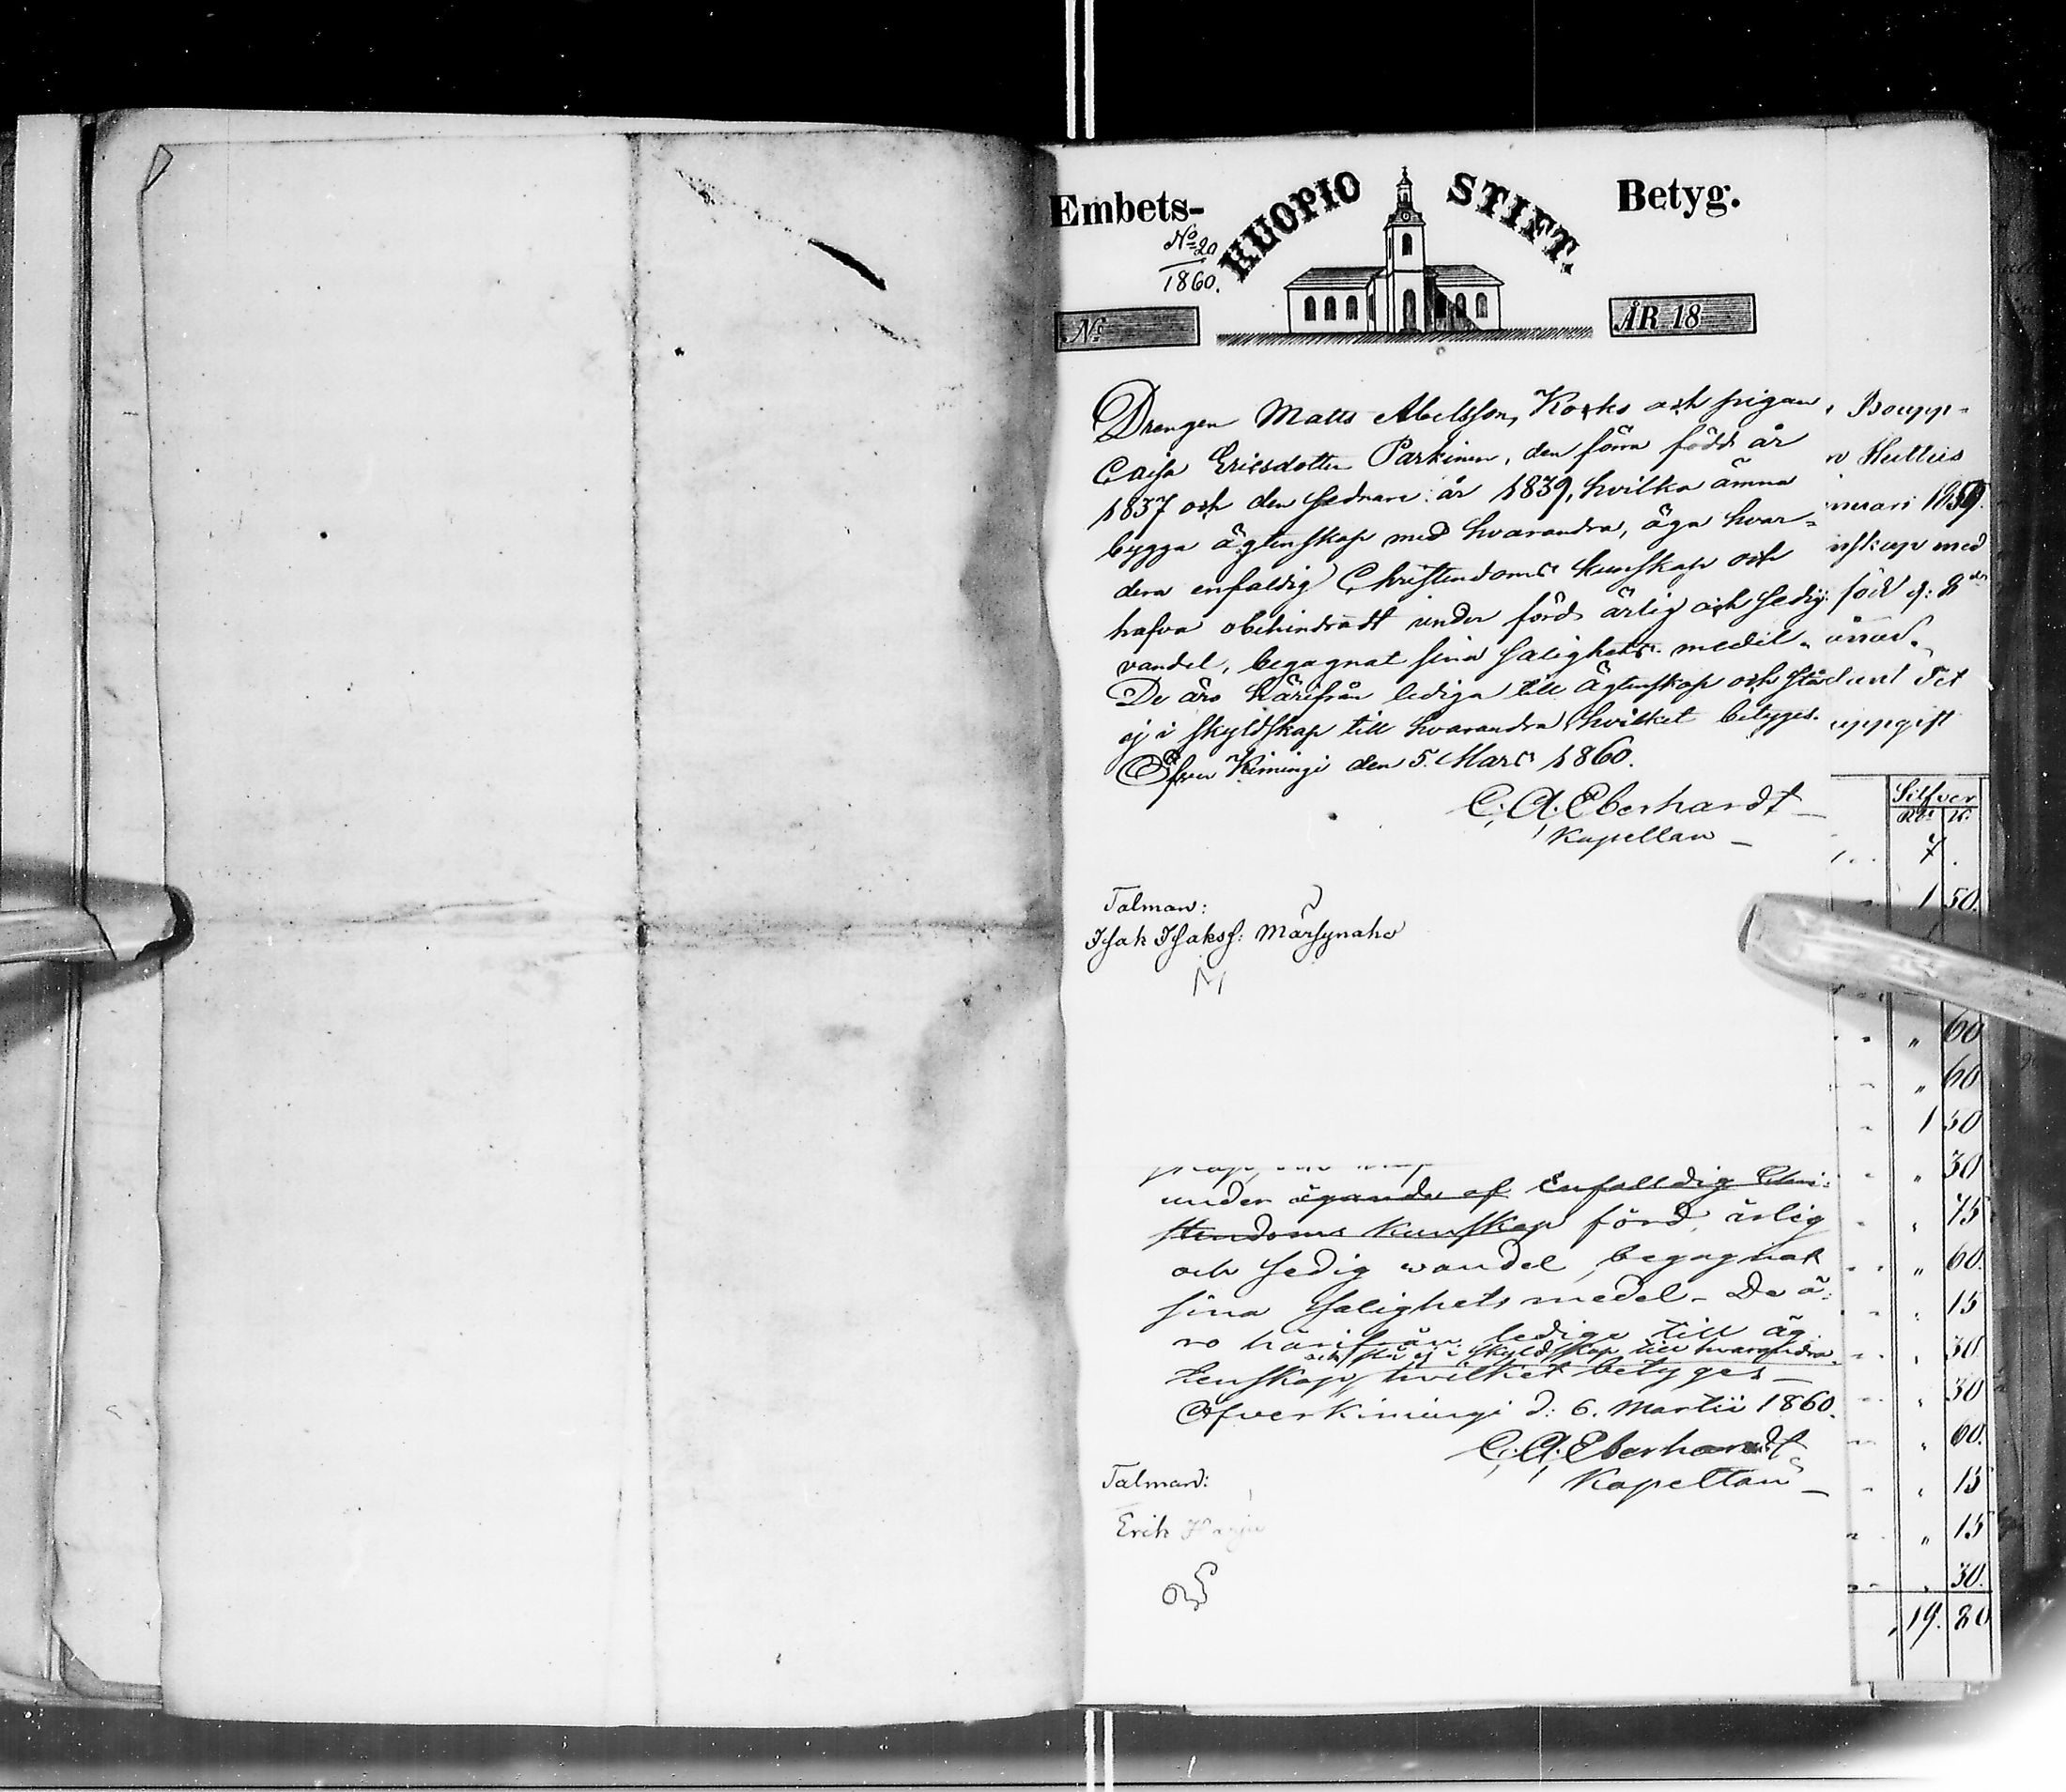 Embets- KUOPIO STIFT. Betyg.
No 20
1860.
No
ÅR 18
Drengen Matts Abelsson, Korko och pigan
Caisa Ericsdotter Parkinen, den förra född år
1837 och den sednare år 1839, hvilka ämna
bygga ägtenskap med hvarandra, äga hvar=
dera enfaldig Christendoms kunskap och
hafva obehindradt under förd ärlig och sedig
vandel, begagnat sina salighets medel.
De äro härifrån lediga till ägtenskap och stå
ej i skyldskap till hvarandra, hvilket betyges.
Öfver Kimingi den 5. Mars 1860.
C. A. Eberhardt
Kapellan
Talman:
Isak Isakss: Märsynaho
under ägande af enfalldig Chri-
stendoms kunskap förd, ärlig
och sedig wandel, begagnat
sina salighets medel. De ä-
ro härifrån ledige till äg-
och stå ej i skyldskap till hvarandra
tenskap, hvilket betyges
Öfverkimingi d: 6. Martii 1860.
C. A. Eberhardt
Kapellan
Talman:
Erik
Boupp-
nuari 1859.
nskap med
född d: 8de
det
uppgift
Silfver
R. K.
7 .
1 50.
" 60
" 60
1 50
" 30
" 75
" 60.
" 15
" 30
" 30
" 60.
" 15
" 15
" 30.
19. 80